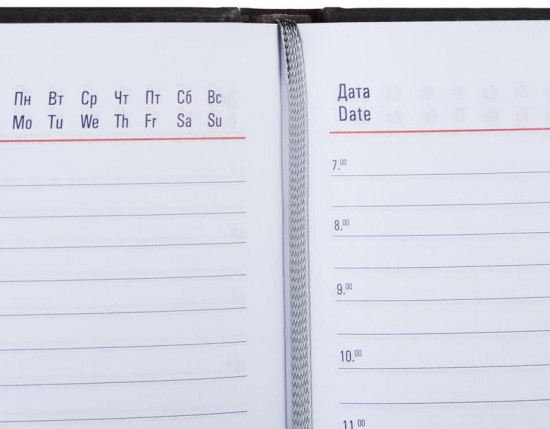 Пн Вт Ср Чт Пт Сб Вс
Mo Tu We Th Fr Sa Su
Дата
Date
7.00
8.00
9.00
10.00
11.00